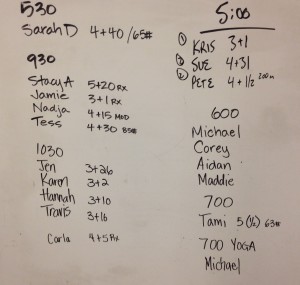 530
Sarah D 4+40/65#
930
Stacy A 5+20 RX
Jamie 3+1 RX
Nadja 4+15 MOD
Tess 4+30 85#
1030
Jen 3+26
Karen 3+2
Hannah 3+10
Travis 3+16
Carla 4+5 Rx
5:00
① KRIS 3+1
③ SUE 4+31
② PETE 4+1/2 200m
600
Michael
Corey
Aidan
Maddie
700
Tami 5 (1/2) 63#
700 YOGA
Michael